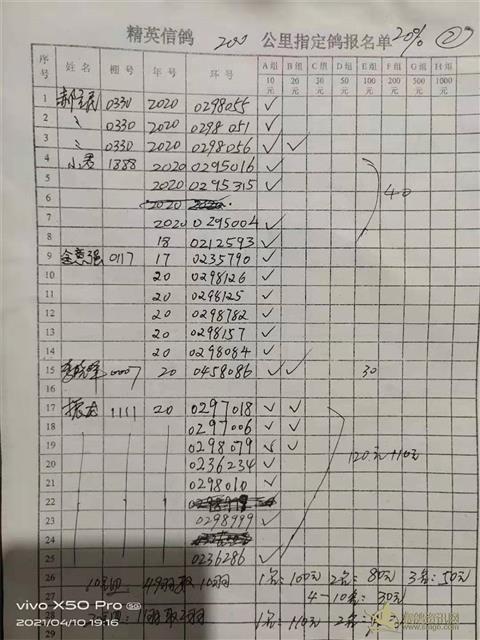 精英信鸽 200 公里指定鸽报名单 20% ②
序号 姓名 棚号 年号 环号 A组 10元 B组 20元 C组 30元 D组 50元 E组 100元 F组 200元 G组 500元 H组 1000元
1 0330 2020 0298055 ✓
2 〃 0330 2020 0298051 ✓
3 〃 0330 2020 0298056 ✓ ✓
4 1888 2020 0295016 ✓
5 2020 0295315 ✓ 40
6 2020
7 2020 0295004 ✓
8 18 0212593 ✓
9 0117 17 0235790 ✓
10 20 0298126 ✓
11 20 0298125 ✓
12 20 0298782 ✓
13 20 0298157 ✓
14 20 0298084 ✓
15 0007 20 0458086 ✓ ✓ 30
16
17 1111 20 0297018 ✓ ✓
18 0297006 ✓ ✓
19 0298079 ✓ ✓ 120元+10元
20 0236234 ✓
21 0298010 ✓
22
23 0298999 ✓
24
25 0236286 ✓
26 10元组: 49羽取10羽 1名:100元 2名:80元 3名:50元
27 4-10名:30元
28 1名:110元 2名:
29
vivo X50 Pro
2021/04/10 19:16